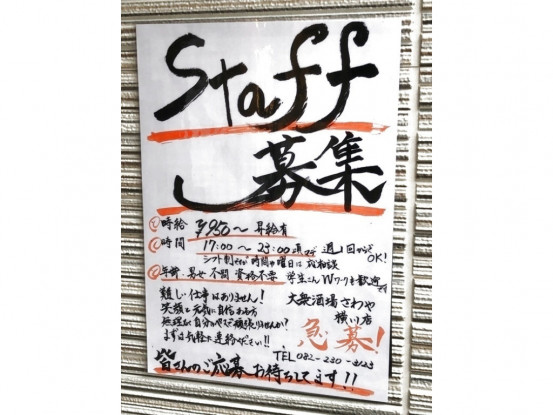 Staff
募集
時給 ¥950〜 昇給有
時間 17:00〜23:00頃まで 週1回からでもOK!
シフト制ですが時間や曜日は応相談
年齢・男女不問 資格不要 学生さん Wワークも歓迎です
難しい仕事はありません!
笑顔と元気に自信ある方
無理なく自分のペースで頑張りませんか?
まずはお気軽に連絡ください!!
大衆酒場さわや
横川店
急募!
TEL 082-230-
皆さんのご応募 お待ちしてます!!